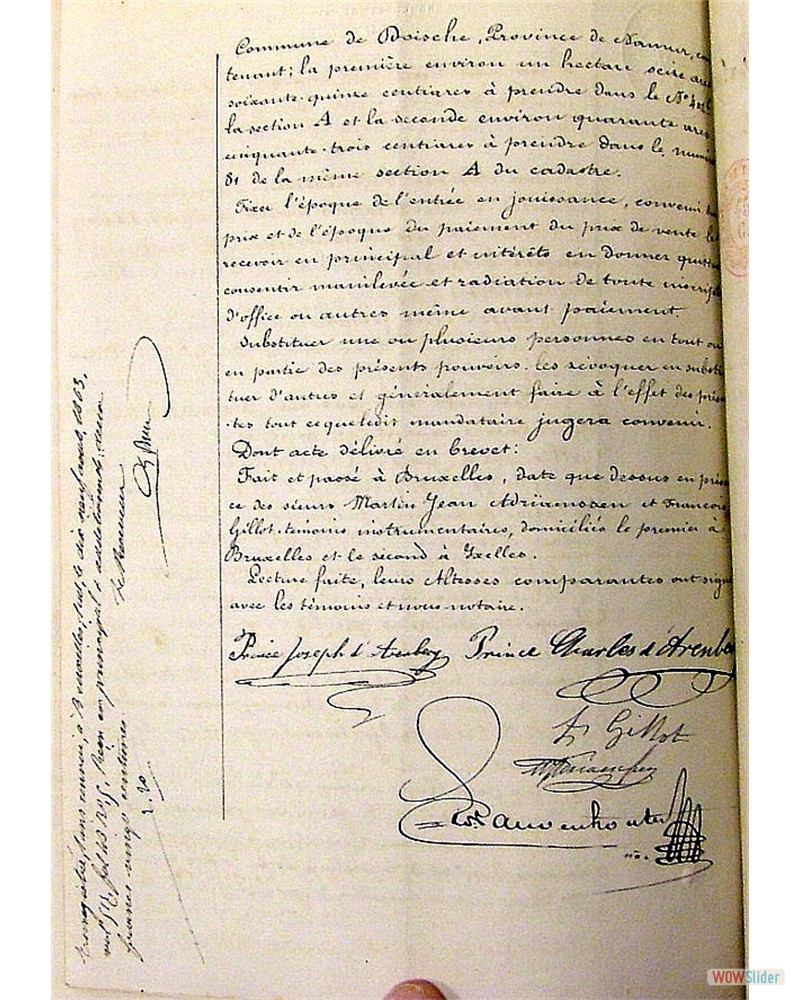 Commune de Doische, Province de Namur, con
tenant; la première environ un hectare seize ares
soixante-quinze centiares à prendre dans le N°
la section A et la seconde environ quarante ares
cinquante-trois centiares à prendre dans le numéro
81 de la même section A du cadastre.
Fixer l'époque de l'entrée en jouissance, convenir du
prix et de l'époque du paiement du prix de vente le
recevoir en principal et intérêts en donner quittan
consentir mainlevée et radiation de toute inscrip
d'office ou autres même avant paiement.
Substituer une ou plusieurs personnes en tout ou
en partie des présents pouvoirs. les révoquer en substi
tuer d'autres et généralement faire à l'effet des présen
tes tout ce que ledit mandataire jugera convenir.
Dont acte délivré en brevet:
Fait et passé à Bruxelles, date que dessus en présen
ce des sieurs Martin Jean Adriaenssen et François
Gillot témoins instrumentaires, domiciliés le premier à
Bruxelles et le second à Ixelles.
Lecture faite, leurs Altesses comparantes ont signé
avec les témoins et nous notaire.
Prince Joseph d'Arenberg Prince Charles d'Arenber
F Gillot
Enregistré, sans renvoi, à Bruxelles, Sud, le dix neuf août 1863,
vol fol Reçu en principal & additionnels deux
francs vingt centimes
2.20
Le Receveur
WOWSlider